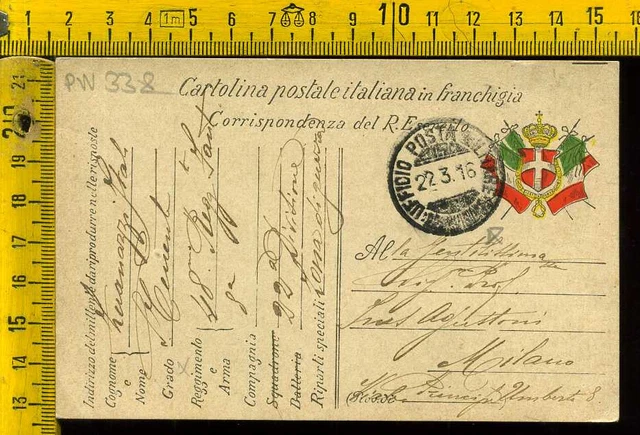 1 2 3 4 1m 5 6 7 8 9 10 11 12 13 14 15 16
21
20
19
18
17
16
15
14
13
PW 338
Cartolina postale italiana in franchigia
Corrispondenza del R. Esercito
UFFICIO POSTA MILITARE
22.3.16
Alla Gentilissima
Sig.na Prof.
Agustoni
Milano
Principe Umberto 8
Indirizzo del mittente da riprodurre nelle risposte
Cognome
e
Nome
Grado
Reggimento 48° Regg. Fant
e
Arma
Compagnia 9a
Squadrone
Batteria
22a Divisione
Riparti speciali Zona di guerra